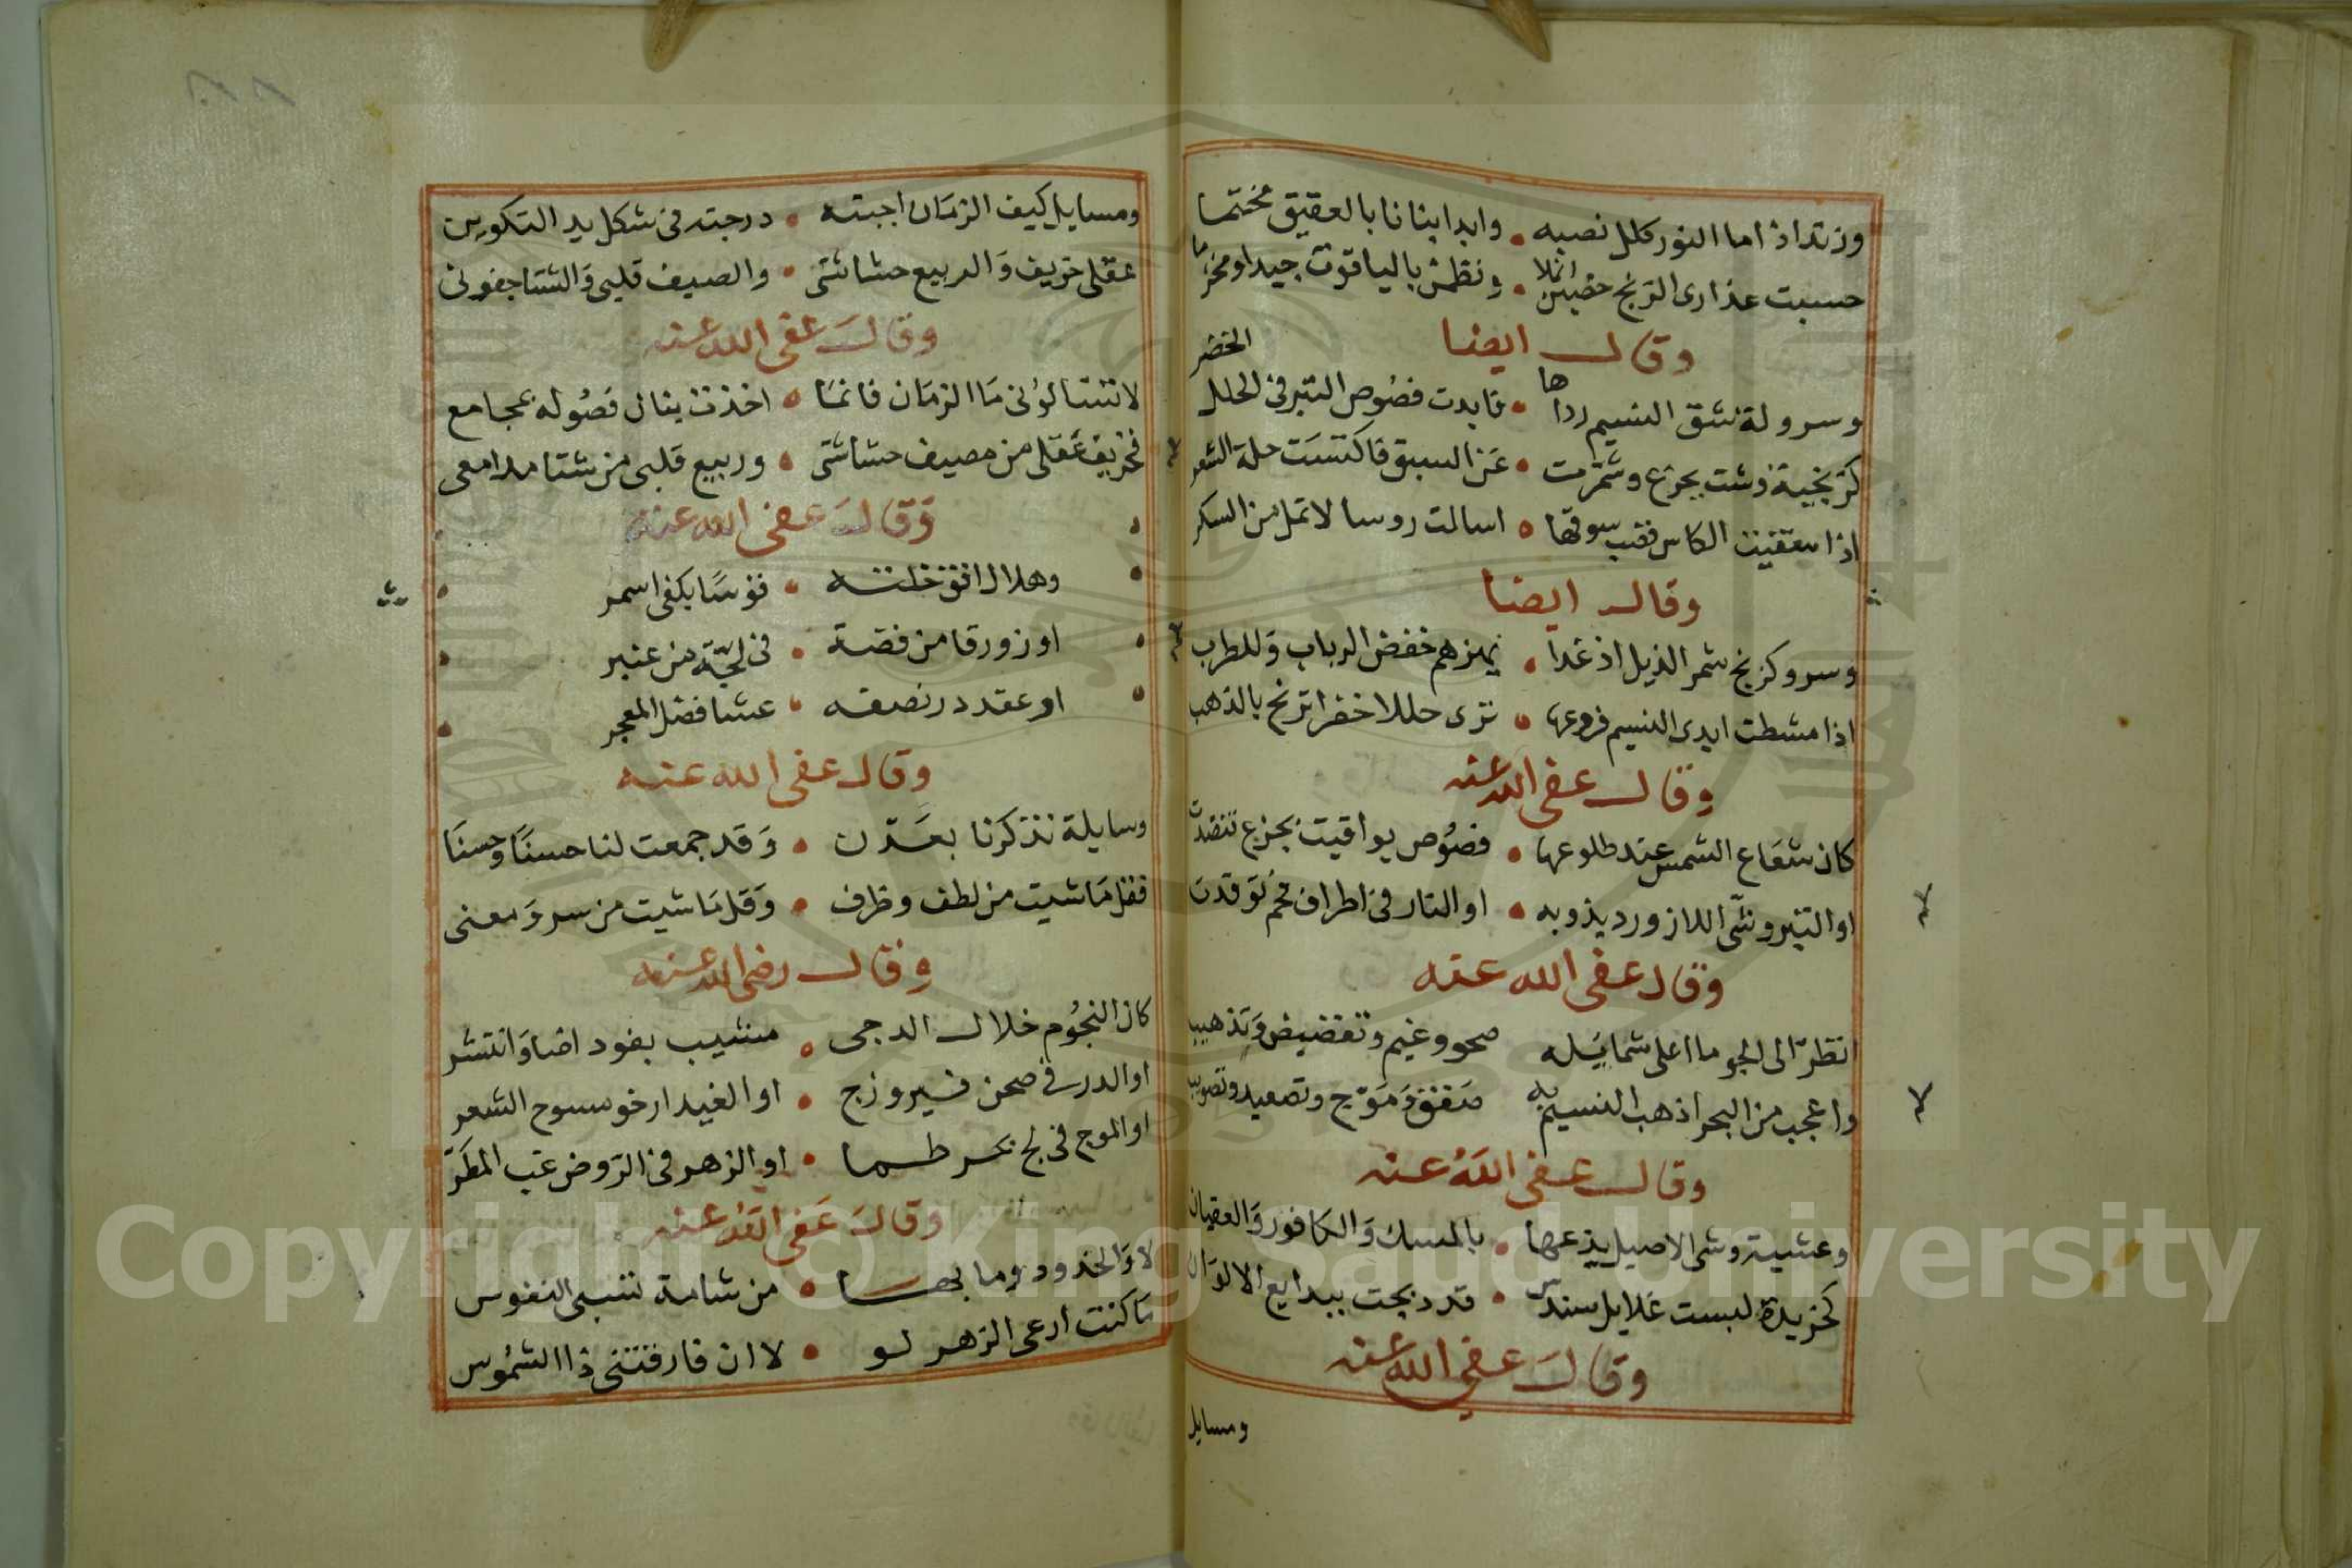 وزند اذا ما النور كلل نصبه • وابدا بنانا بالعقيق مختما
حسبت عذارى الزنج خضبن انملا • ونظمن بالياقوت جيدا ومخزما
وقال ايضا
وسرولة شق النسيم رداها • فابدت فصوص التبر في الحلل الخضر
كزنجية وشت بجزع وشمرت • عن السبق فاكتست حلة الشعر
اذا سقيت الكاس قضب سوقها • اسالت روسا لا تمل من السكر
وقال ايضا
وسرو كزنج شمر الذيل اذ غدا • يهزهم خفض الرباب وللطرب
اذا مشطت ايدى النسيم فروعها • ترى حللا خضرا تزنج بالذهب
وقال عفى الله عنه
كان شعاع الشمس عند طلوعها • فصوص يواقيت بجزع تنضدت
او التبر وشى اللازورد بذوبه • او النار في اطراف فحم توقدت
وقال عفى الله عنه
انظر الى الجو ما اعلى شمايله صحو وغيم وتفضيض وتذهيب
واعجب من البحر اذ هب النسيم به صفق وموج وتصعيد وتصويب
وقال عفى الله عنه
وعشية وشى الاصيل بذعها • بالمسك والكافور والعقيان
كخريدة لبست غلايل سندس • قد دبجت ببدايع الالوان
وقال عفى الله عنه
ومسايل
ومسايل كيف الزمان اجبته • درجته في شكل يد التكوين
عقلى خريف والربيع حشاشتى • والصيف قلبى والشتا جفونى
وقال عفى الله عنه
لا تتسالونى ما الزمان فانما • اخذت بنال فصوله بمجامع
فخريف عقلى من مصيف حشاشتى • وربيع قلبى من شتا مدامعى
وقال عفى الله عنه
وهلال افق خلته • قوسا بكفى اسمر
او زورقا من فضة • في لجة من عنبر
او عقد در نصفه • عشا فضل المعجر
وقال عفى الله عنه
وسايلة تذكرنا بعدن • وقد جمعت لنا حسنا وحسنا
فقل ما شيت من لطف وظرف • وقل ما شيت من سر ومعنى
وقال رضى الله عنه
كان النجوم خلال الدجى • مشيب بفود اضا وانتشر
او الدر في صحن فيروزج • او الغيد ارخو سوح الشعر
او الموج في لج بحر طما • او الزهر في الروض غب المطر
وقال عفى الله عنه
لا والخدود وما بها • من شامة تسبى النفوس
ما كنت ارعى الزهر لو • لا ان فارقتنى ذا الشموس
Copyright © King Saud University